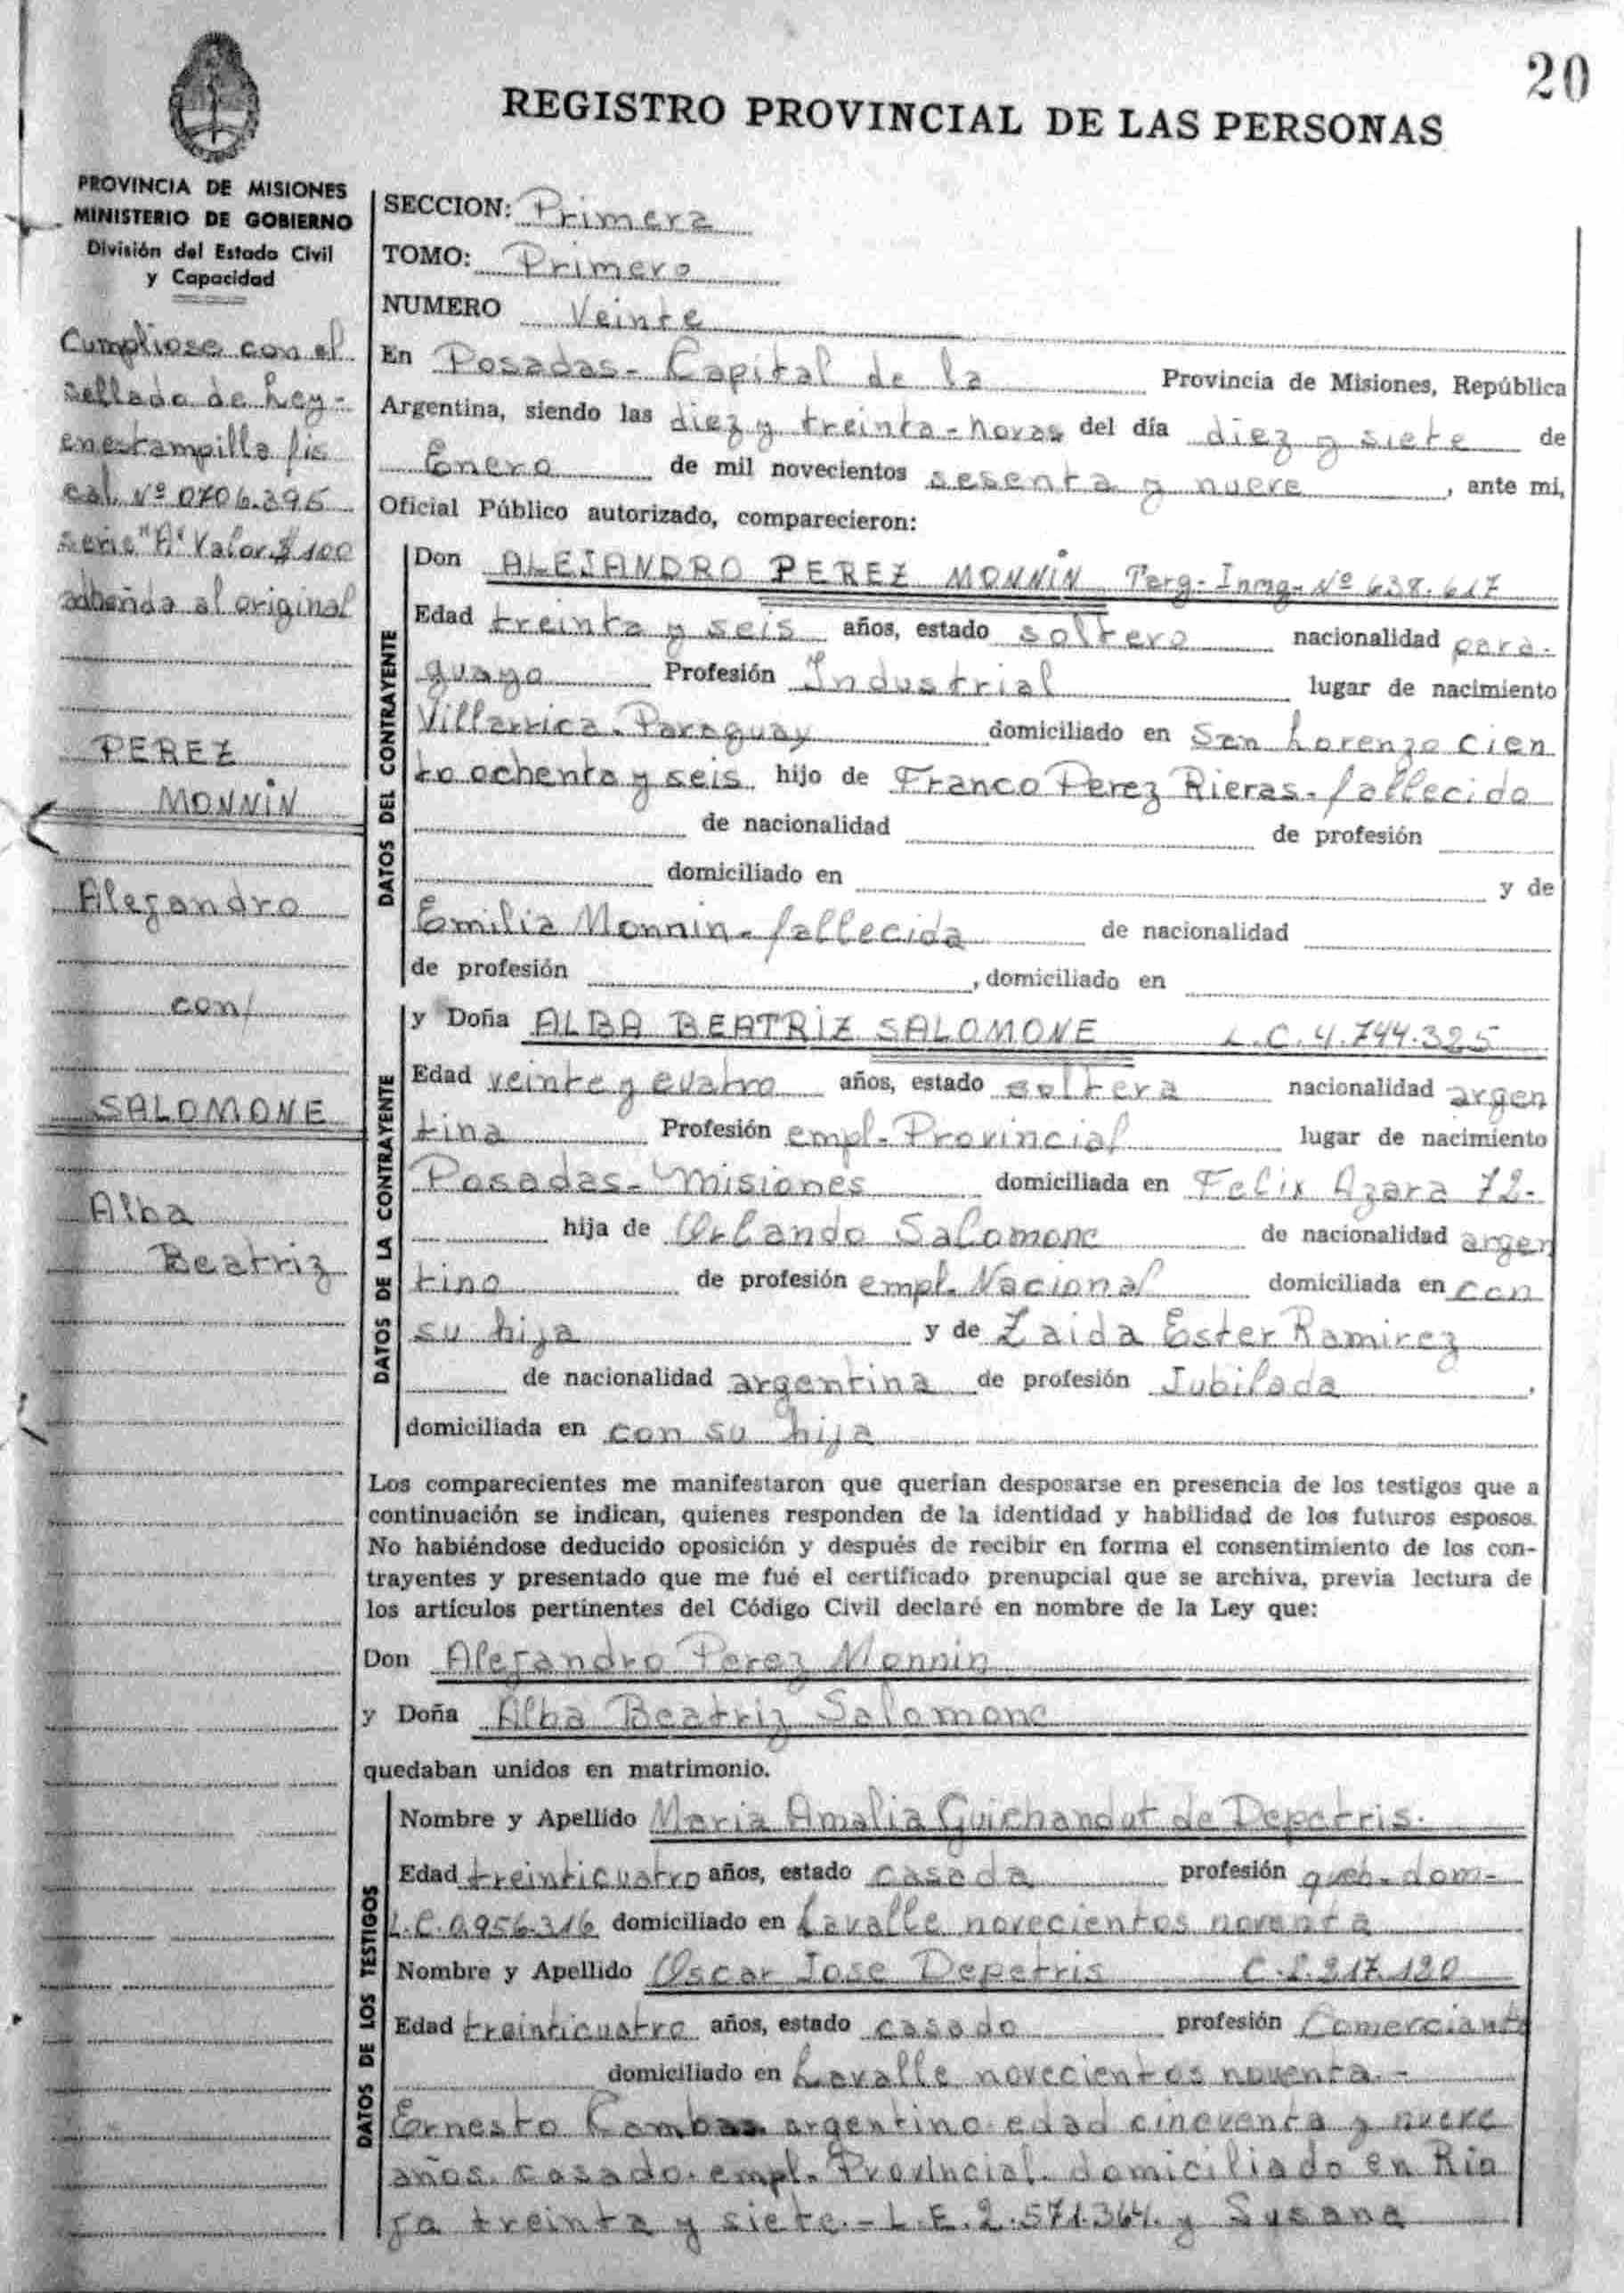 20
REGISTRO PROVINCIAL DE LAS PERSONAS
PROVINCIA DE MISIONES
MINISTERIO DE GOBIERNO
División del Estado Civil
y Capacidad
Cumpliose con el
sellado de Ley-
en estampilla fis
cal Nº 0706.395
serie "A" Valor $ 100
adherida al original
PEREZ
MONNIN
Alejandro
con/
SALOMONE
Alba
Beatriz
SECCION: Primera
TOMO: Primero
NUMERO Veinte
En Posadas- Capital de la Provincia de Misiones, República
Argentina, siendo las diez y treinta - horas del día diez y siete de
Enero de mil novecientos sesenta y nueve, ante mi,
Oficial Público autorizado, comparecieron:
DATOS DEL CONTRAYENTE
Don ALEJANDRO PEREZ MONNIN Nº 638.617
Edad treinta y seis años, estado soltero nacionalidad para-
guayo Profesión Industrial lugar de nacimiento
Villarrica. Paraguay domiciliado en San Lorenzo cien
to ochenta y seis hijo de Franco Perez Rieras- fallecido
de nacionalidad de profesión
domiciliado en y de
Emilia Monnin- fallecida de nacionalidad
de profesión , domiciliado en
DATOS DE LA CONTRAYENTE
y Doña ALBA BEATRIZ SALOMONE L.C. 4.744.325
Edad veinte y cuatro años, estado soltera nacionalidad argen
tina Profesión empl- Provincial lugar de nacimiento
Posadas- Misiones domiciliada en Felix Azara 72-
hija de Orlando Salomone de nacionalidad argen
tino de profesión empl. Nacional domiciliada en con
su hija y de Zaida Ester Ramirez
de nacionalidad argentina de profesión Jubilada ,
domiciliada en con su hija
Los comparecientes me manifestaron que querían desposarse en presencia de los testigos que a
continuación se indican, quienes responden de la identidad y habilidad de los futuros esposos.
No habiéndose deducido oposición y después de recibir en forma el consentimiento de los con-
trayentes y presentado que me fué el certificado prenupcial que se archiva, previa lectura de
los artículos pertinentes del Código Civil declaré en nombre de la Ley que:
Don Alejandro Perez Monnin
y Doña Alba Beatriz Salomone
quedaban unidos en matrimonio.
DATOS DE LOS TESTIGOS
Nombre y Apellido Maria Amalia Guichandut de Depetris.
Edad treinticuatro años, estado casada profesión queh. dom-
L.C. 0.956.316 domiciliado en Lavalle novecientos noventa
Nombre y Apellido Oscar Jose Depetris C.I. 217.120
Edad treinticuatro años, estado casado profesión Comerciante
domiciliado en Lavalle novecientos noventa.-
Ernesto argentino edad cincuenta y nueve
años. casado. empl. Provincial. domiciliado en Rio
ja treinta y siete.- L.E. 2.571.364. y Susana